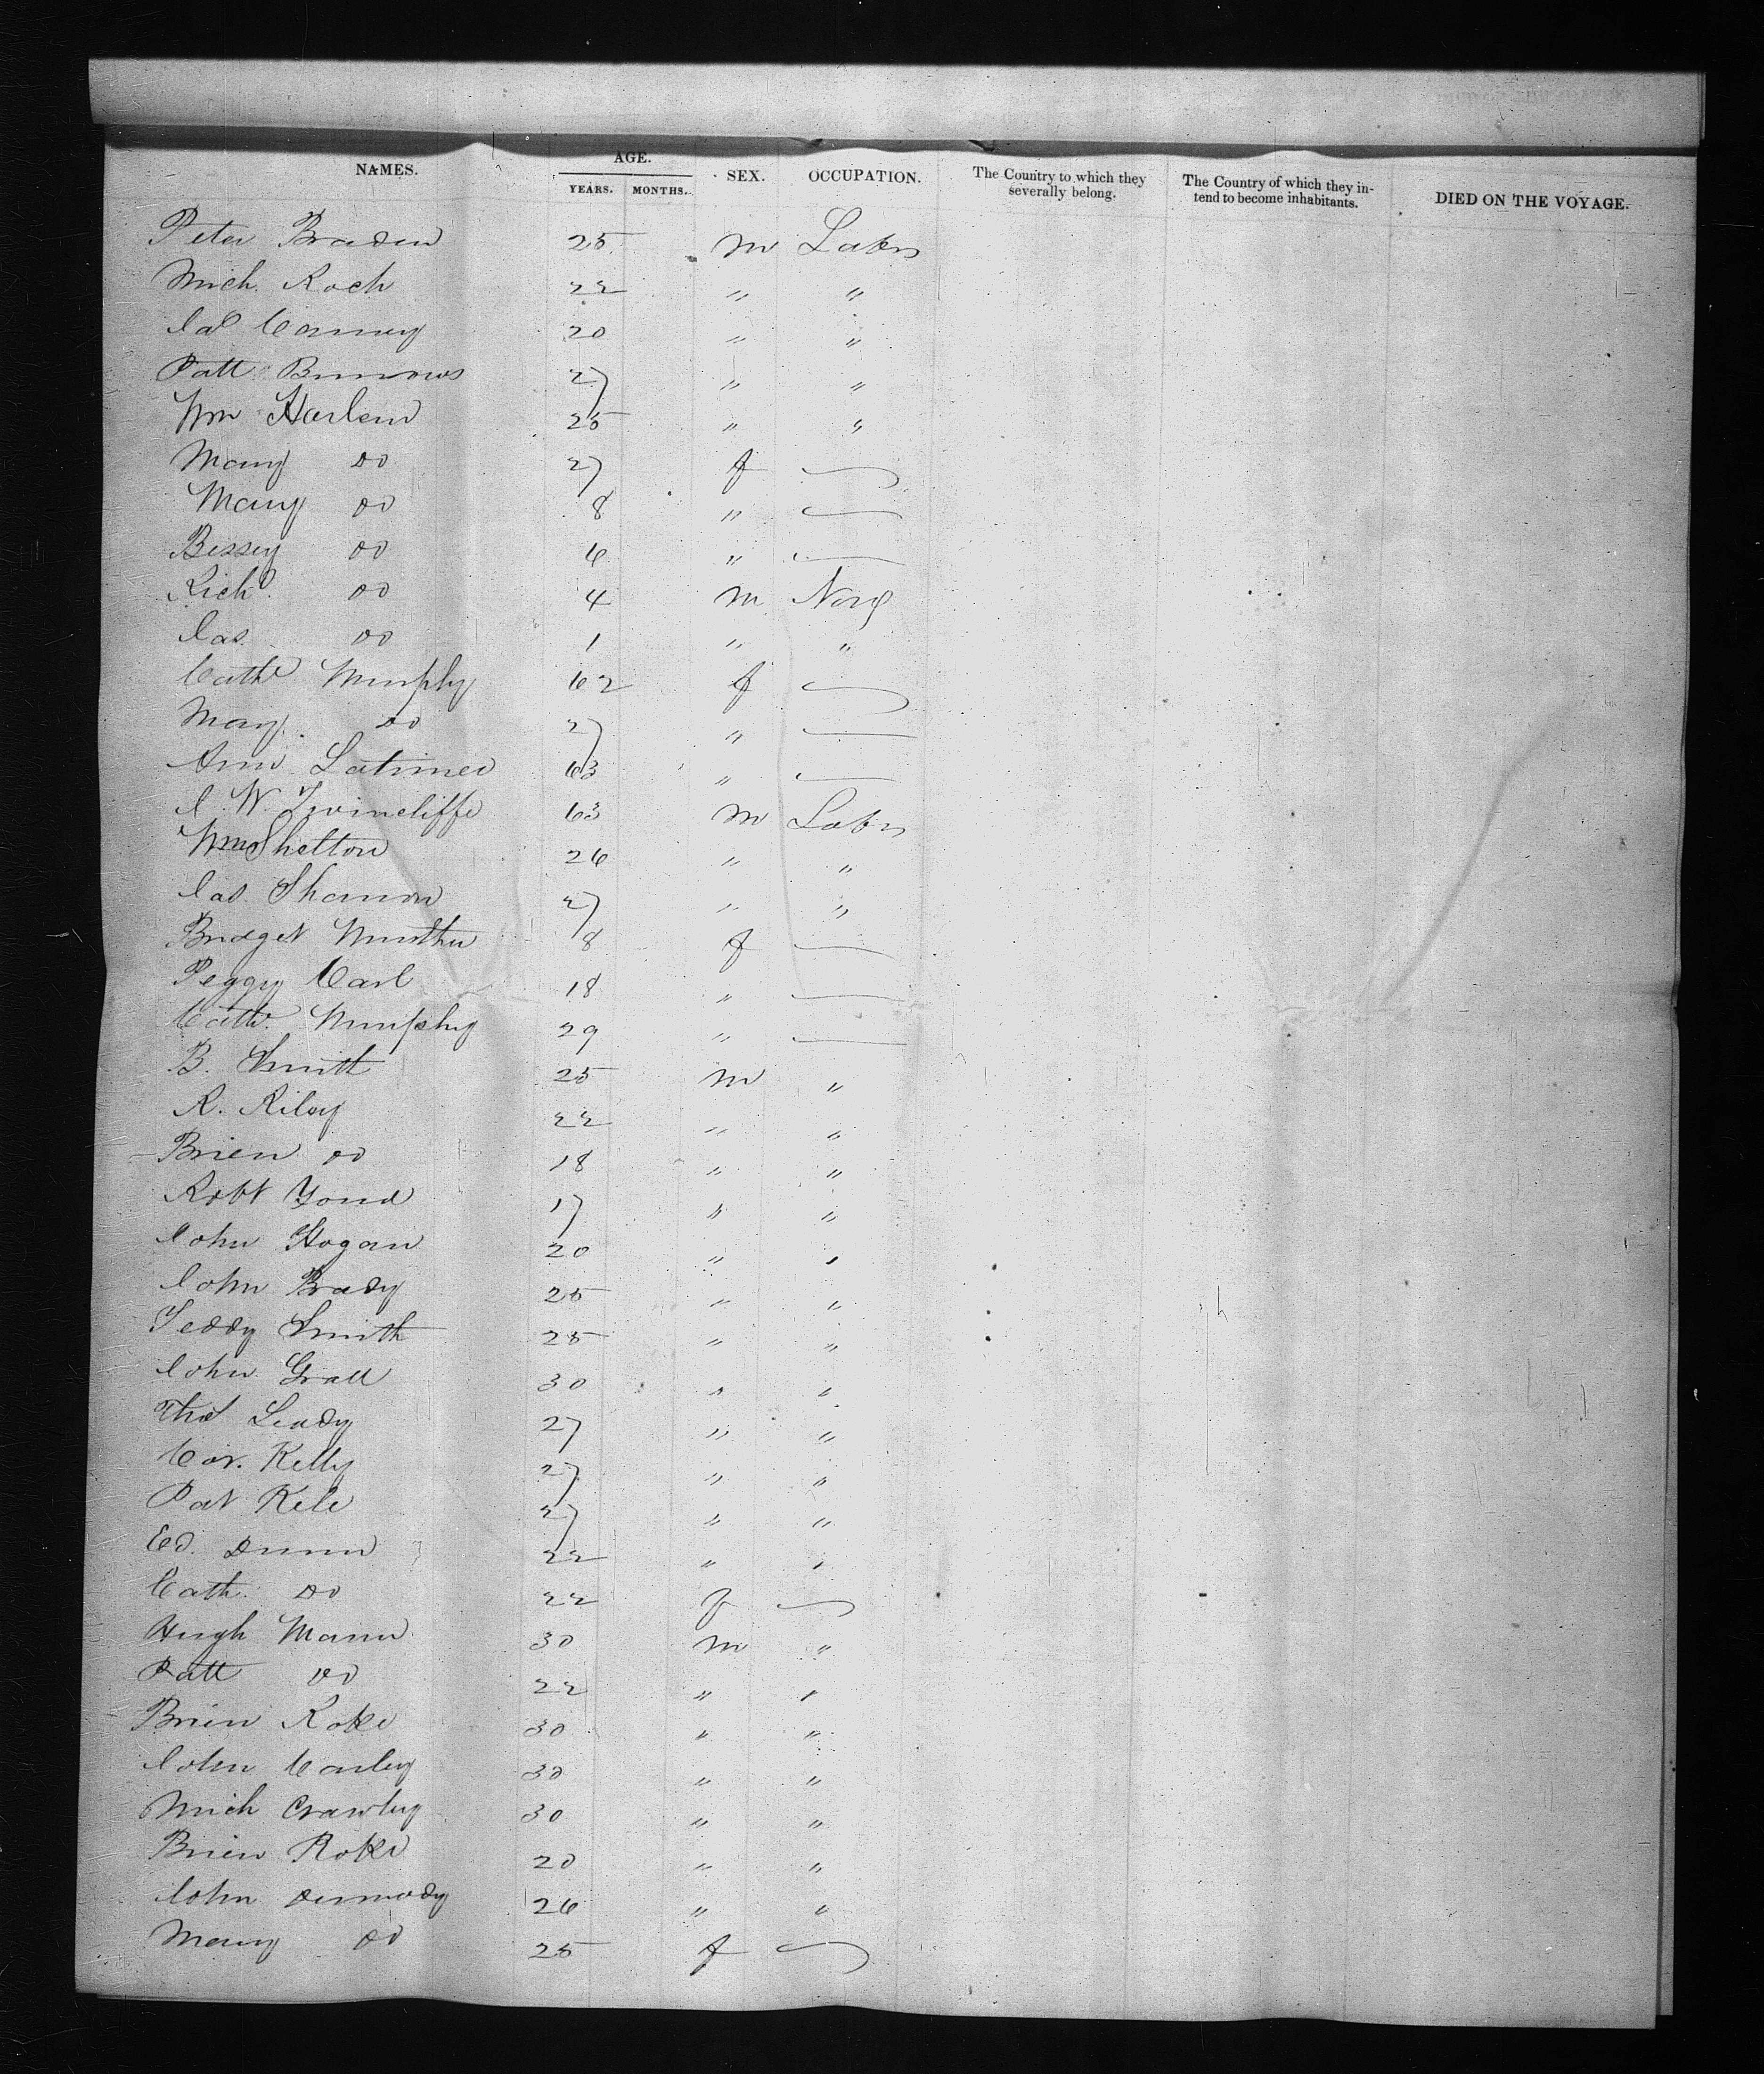 NAMES. AGE. YEARS. MONTHS. SEX. OCCUPATION. The Country to which they severally belong. The Country of which they intend to become inhabitants. DIED ON THE VOYAGE.
Peter Braden 25 m Labr
Mich. Roch 22 " "
Jas Conney 20 " "
Patt Burrows 27 " "
Wm Harlem 25 " "
Mary do 27 f
Mary do 8 "
Bessey do 6 "
Richd do 4 m None
Jas. do 1 " "
Cathe Murphy 62 f
Mary do 27 "
Ann Latimer 63 "
J. W. Twincliffe 63 m Labr
Wm Shelton 26 " "
Jas. Shannon 27 " "
Bridget 8 f
Peggy Carl 18 "
Cath. Murphy 29 "
B. Smith 25 m "
R. Riley 22 " "
Brien do 18 " "
Robt Yond 17 " "
John Hogan 20 " "
John Brady 25 " "
Teddy Smith 25 " "
John Gratt 30 " "
Thos Leady 27 " "
Cor. Kelly 27 " "
Pat Kele 27 " "
Ed. Dunn 22 " "
Cath. do 22 f
Hugh Mann 30 m "
Patt do 22 " "
Brien Roke 30 " "
John Carley 30 " "
Mich Crawley 30 " "
Brien Roke 20 " "
John Dermody 26 " "
Mary do 25 f